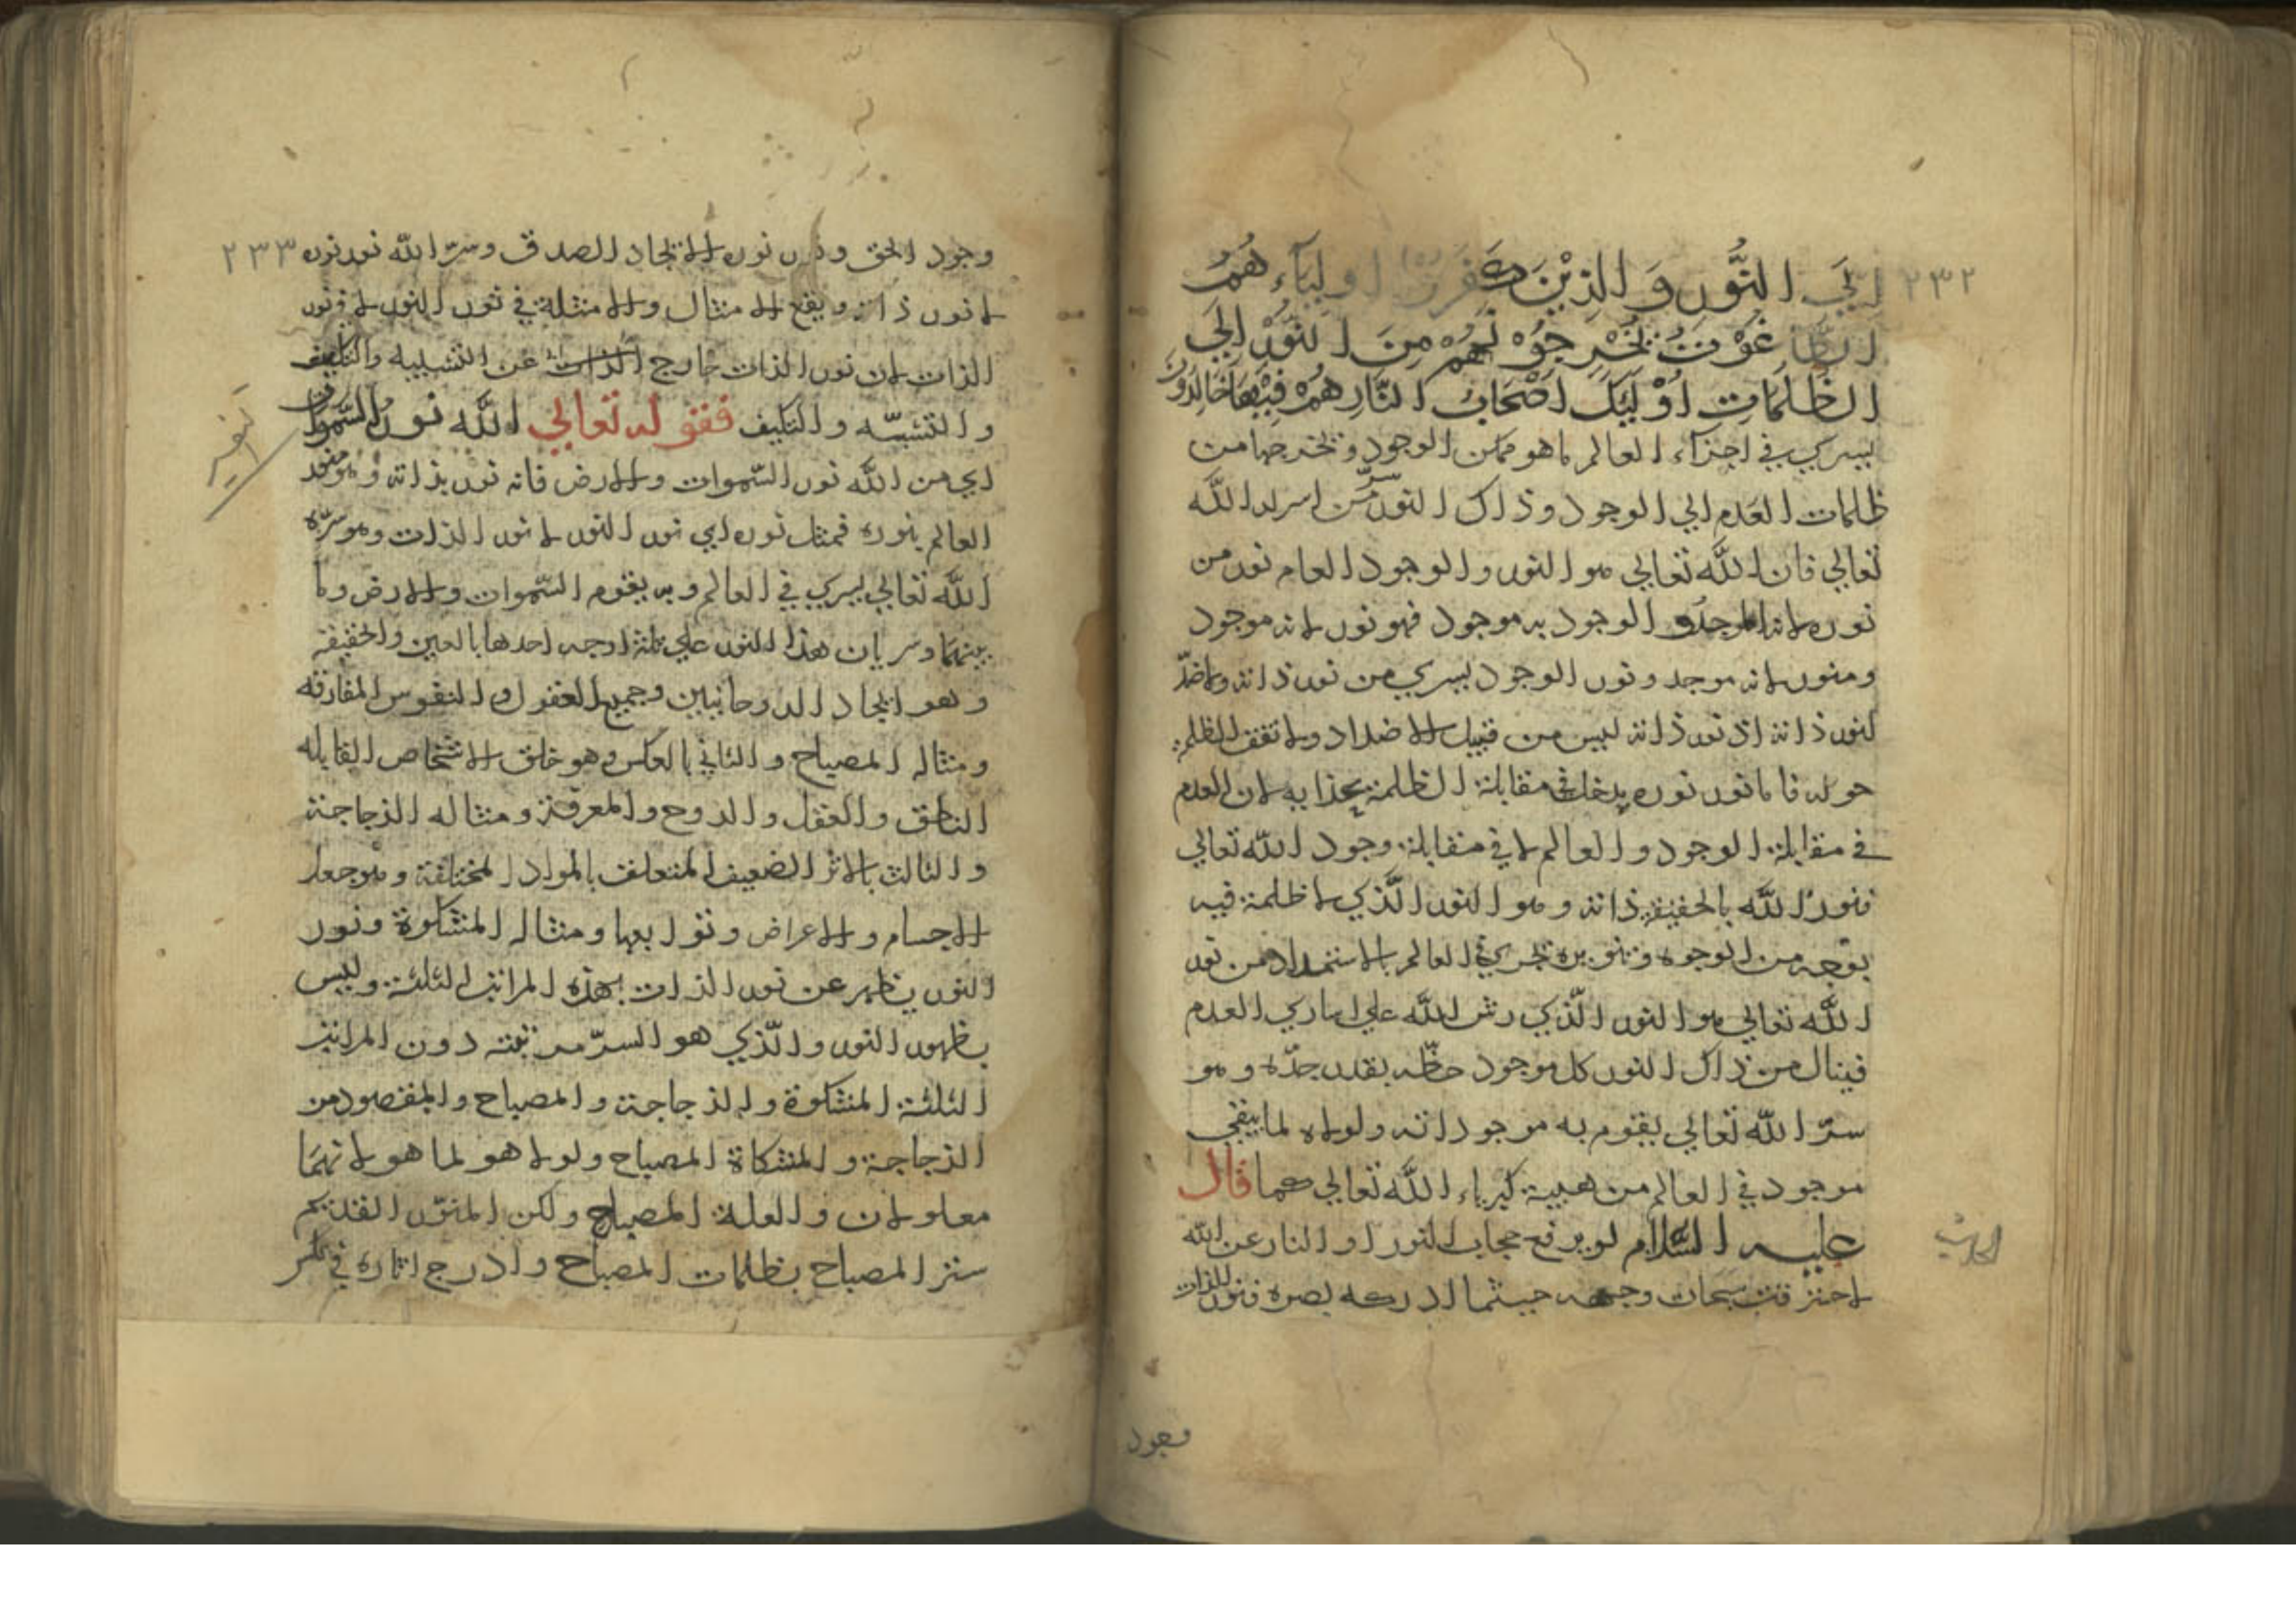 ٢٣٢
اِلَي النُّورِ وَالَّذِيْنَ كَفَرُوْا اولِيَآءُ هُمُ
الطَّاغُوْتُ يُخْرِجُوْنَهُمْ مِنَ النُّوْرِ اِلَي
الظُّلُمَاتِ اُوْلَئِكَ اَصْحَابُ النَّارِ هُمْ فِيْهَا خَالِدُوْنَ
يسري في اجزاء العالم ما هو ممكن الوجود وتخرجها من
ظلمات العدم الي الوجود وذاك النور سرّ من اسرار الله
تعالي فان الله تعالي هو النور والوجود العام نور من
نوره لانه الموجد و الوجود به موجود فهو نور لانه موجود
ومنور لانه موجد ونور الوجود يسري من نور ذاته ولا ضدّ
لنور ذاته اذ نور ذاته ليس من قبيل الاضداد ولا تقف الظلمة
حوله فاما نور نوره يدخل في مقابلة الظلمة بحذايه لان العدم
في مقابلة الوجود والعالم لا في مقابلة وجود الله تعالي
فنور الله بالحقيقة ذاته وهو النور الّذي لا ظلمة فيه
بوجه من الوجوه وتنويره تجري في العالم بالاستمداد من نور
الله تعالي هو النور الّذي رش الله علي العدم
فينال من ذاك النور كل موجود حظّه بقدر حدّه وهو
سرّ الله تعالي يقوم به موجوداته ولولاه لما بقي
موجود في العالم من هيبة كبرياء الله تعالي كما قال
عليه السّلام لو يرفع حجاب النور او النار عن الله
لاحترقت سبحات وجهه حيثما ادركه بصره فنور الذات
الحديث
وجود
٢٣٣
وجود الحق ونور نوره الاتحاد الصدق وسرّ الله نور نوره
لا نور ذاته ويقع الامثال والامثلة في نور النور لا في نور
الذات لان نور الذات خارج الذات عن التشبيه والتكيف
والتشبّه والتكيف فقوله تعالي الله نور السّموات والارض
اي من الله نور السّموات والارض فانه نور بذاته و منور
العالم بنوره فمثل نوره اي نور النور لا نور الذات وهو سرّه
الله تعالي يسري في العالم وبه يقوم السّموات والارض وما
بينهما وسريان هذا النور علي ثلثة اوجه احدها بالعين والحقيقة
وهو ايجاد الروحانيين وجميع العقول و النفوس المفارقه
ومثاله المصباح والثاني بالعكس وهو خلق الاشخاص القابله
الناطق والعقل والروح والمعرفة ومثاله الزجاجة
والثالث بالاثر الضعيف المتعلق بالمواد المختلفة وهو جعل
الاجسام والاعراض وتوابعها ومثاله المشكوة ونور
النور يظهر عن نور الذات بهذه المراتب الثلثة وليس
يظهور النور والّذي هو السرّ مرتبته دون المراتب
الثلثة المشكوة والزجاجة والمصباح والمقصود من
الزجاجة والمشكاة المصباح ولولا هو لما هو لانهما
معلولان والعلة المصباح ولكن المنوّر القديم
ستر المصباح بظلمات المصباح وادرج اثاره في
تنوير